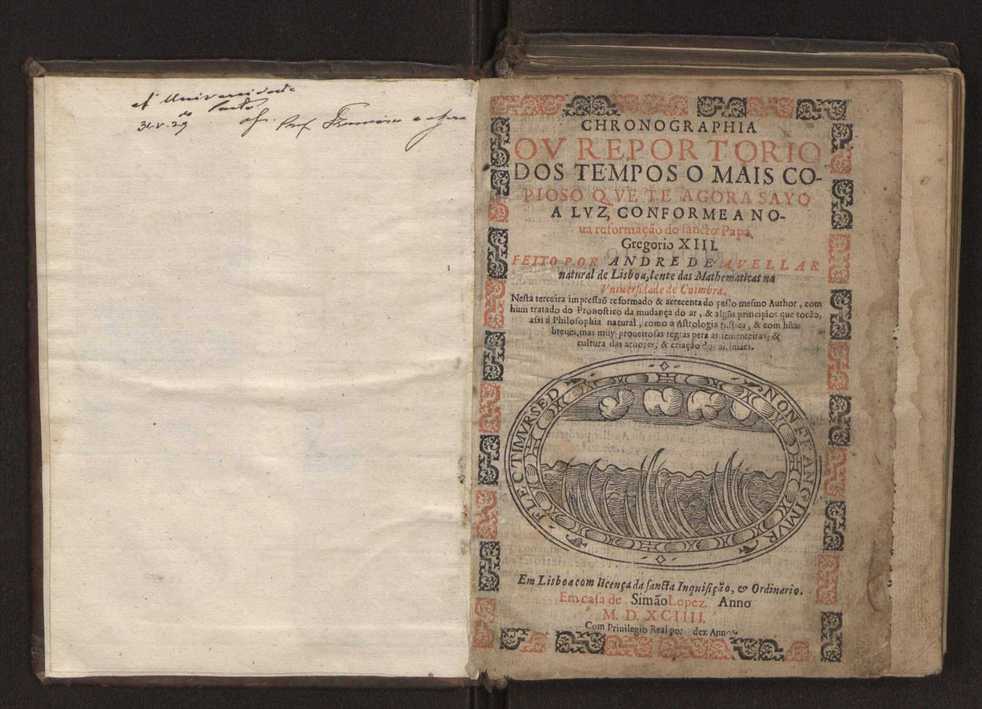 á Universidade
do Porto
31-V-29 of. Prof. Francisco
CHRONOGRAPHIA
OV REPORTORIO
DOS TEMPOS O MAIS CO-
PIOSO QVE TE AGORA SAYO
A LVZ, CONFORME A NO-
ua reformação do sancto Papa
Gregorio XIII.
FEITO POR ANDRE DE AVELLAR
natural de Lisboa, lente das Mathematicas na
Vniuersidade de Coimbra.
Nesta terceira impressaõ reformado & acrecentado pello mesmo Author, com
hum tratado do Pronostico da mudança do ar, & algũs principios que tocão,
assi á Philosophia natural, como a Astrologia rustica, & com hũas
breues, mas muy proueitosas regras pera as sementeiras, &
cultura das aruores, & criação dos animaes.
FLECTIMVR SED NON FRANGIMVR
Em Lisboa com licença da sancta Inquisição, & Ordinario.
Em casa de Simão Lopez. Anno
M. D. XCIIII.
Com Priuilegio Real por dez Annos